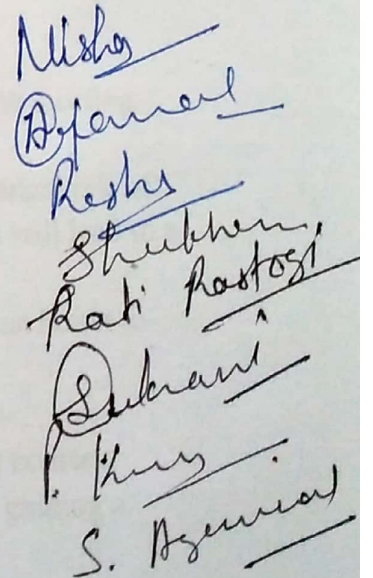 Nisha
Agarwal
Shubham
Rati Rastogi
Sukrani
S. Agarwal